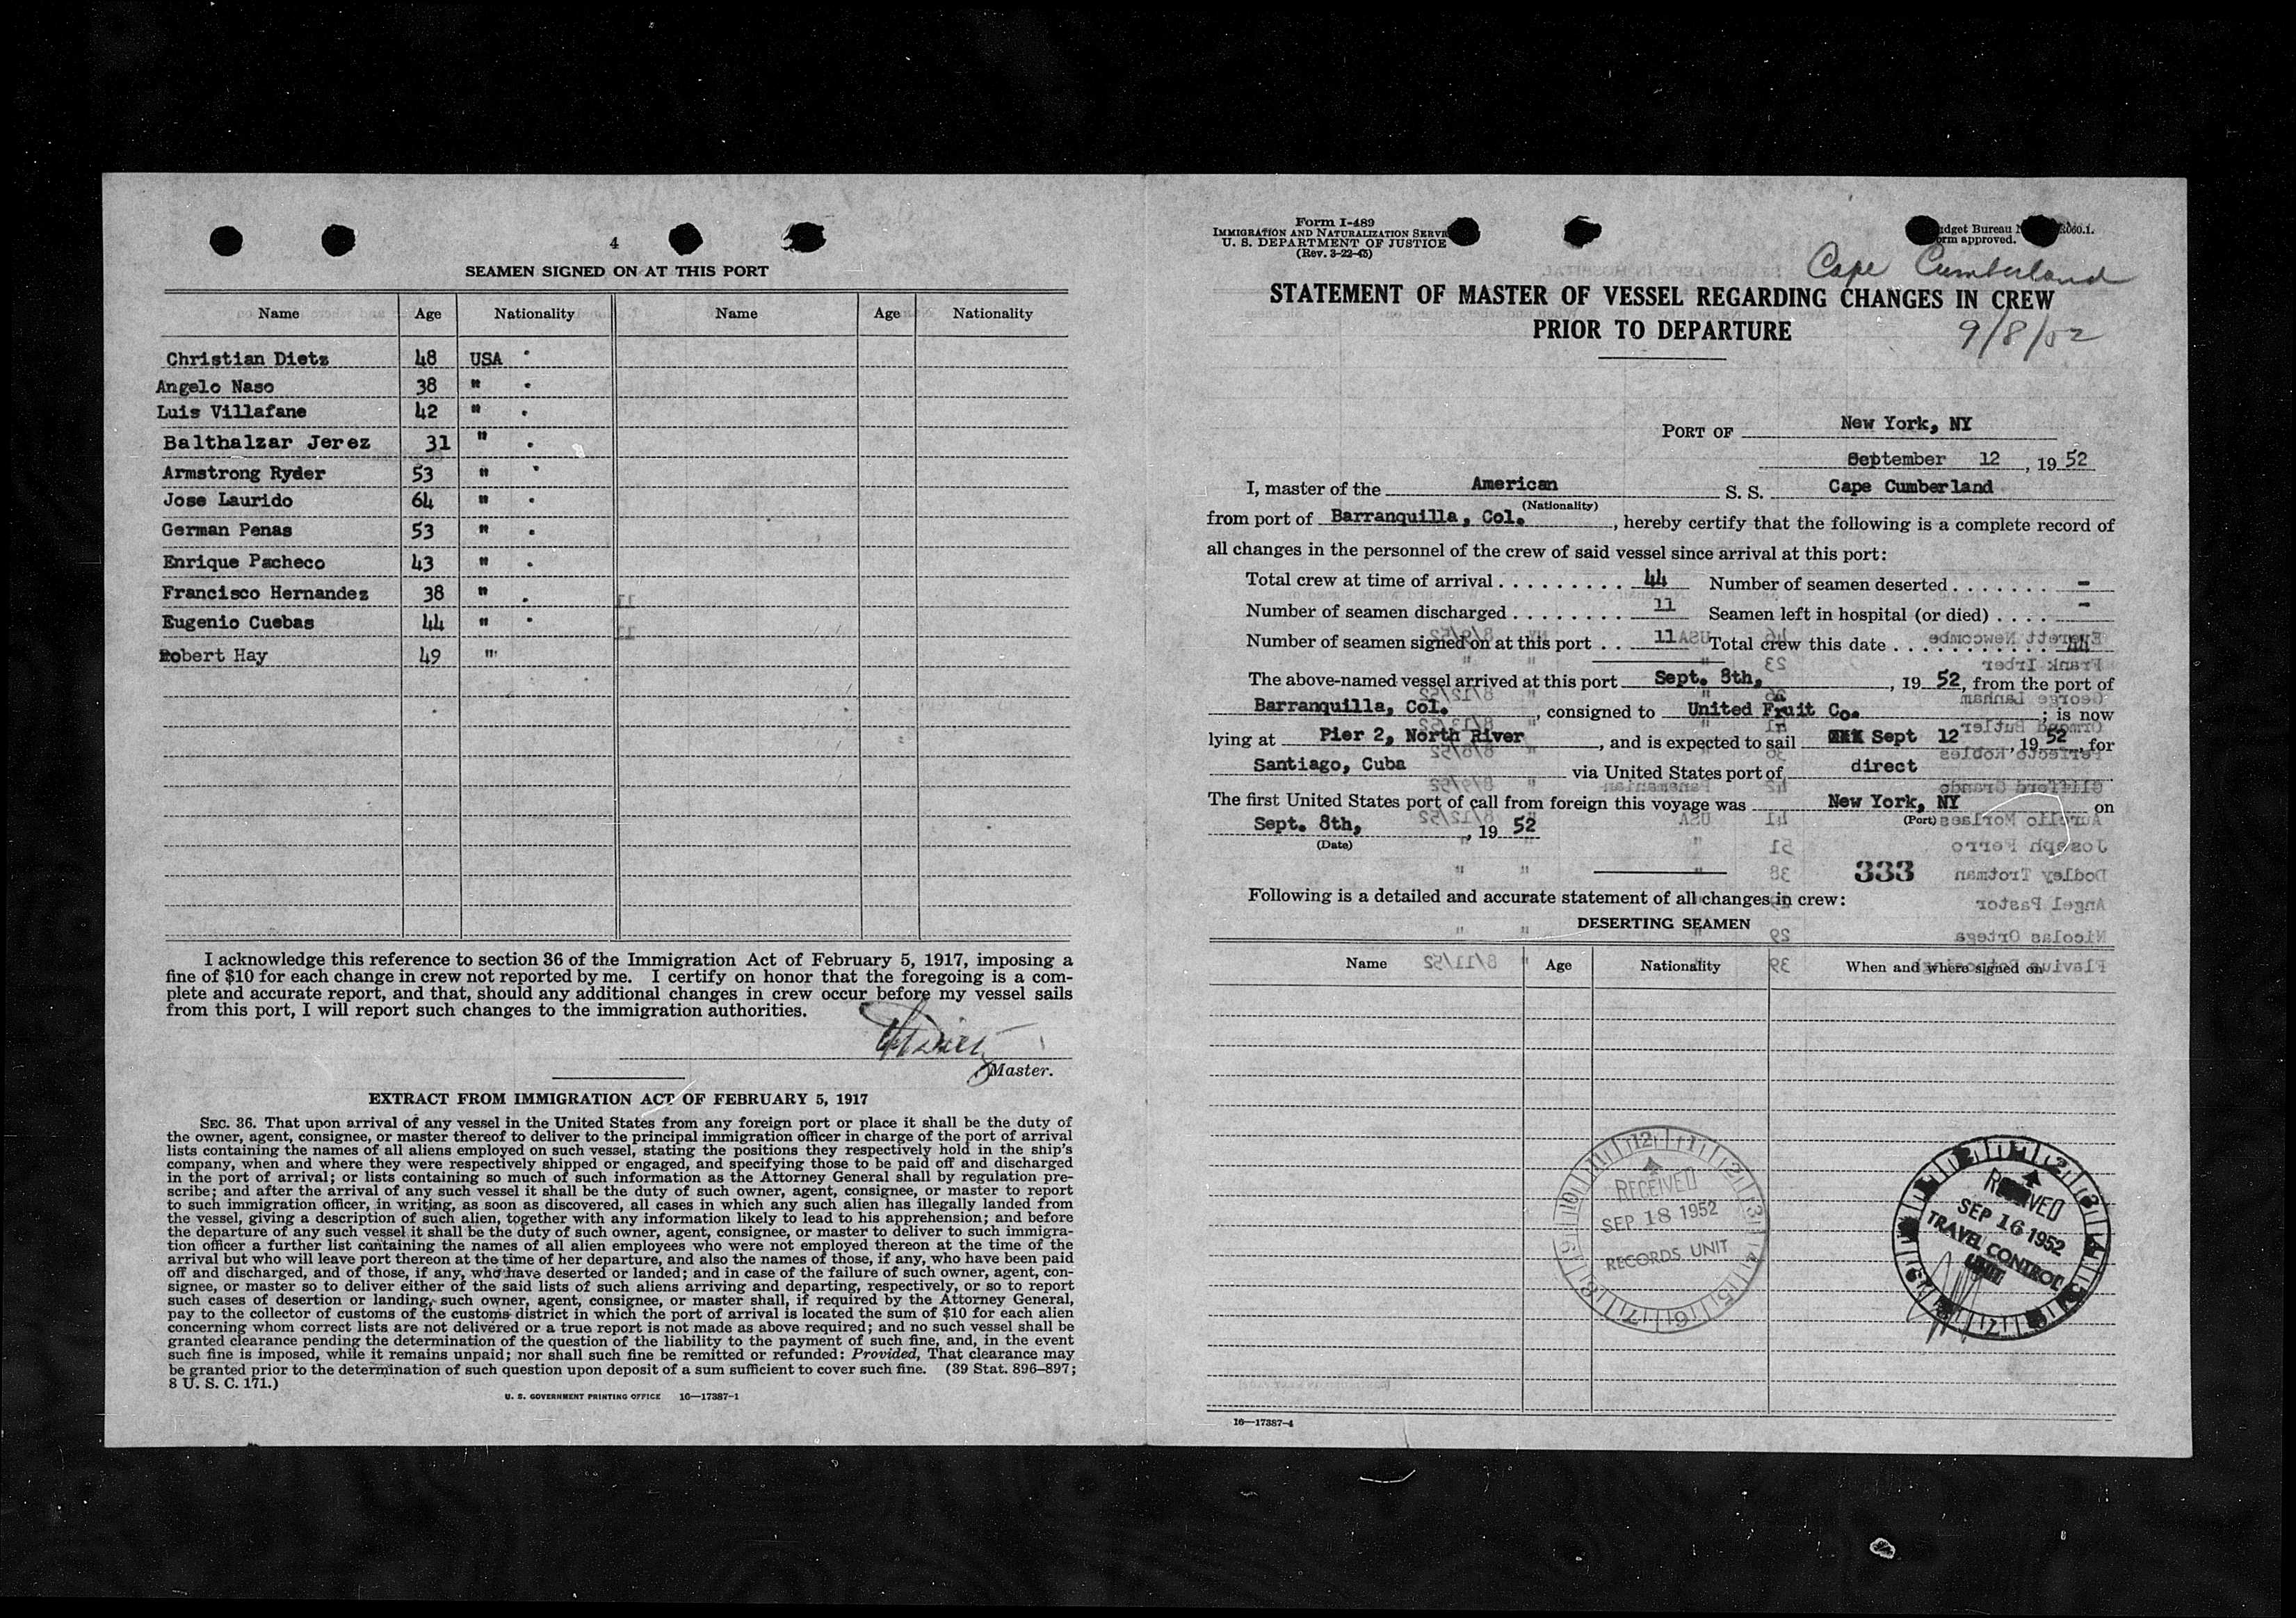 4
SEAMEN SIGNED ON AT THIS PORT
Name Age Nationality Name Age Nationality
Christian Dietz 48 USA
Angelo Naso 38 "
Luis Villafane 42 "
Balthalzar Jerez 31 "
Armstrong Ryder 53 "
Jose Laurido 64 "
German Penas 53 "
Enrique Pacheco 43 "
Francisco Hernandez 38 "
Eugenio Cuebas 44 "
Robert Hay 49 "
I acknowledge this reference to section 36 of the Immigration Act of February 5, 1917, imposing a
fine of $10 for each change in crew not reported by me. I certify on honor that the foregoing is a com-
plete and accurate report, and that, should any additional changes in crew occur before my vessel sails
from this port, I will report such changes to the immigration authorities.
Master.
EXTRACT FROM IMMIGRATION ACT OF FEBRUARY 5, 1917
SEC. 36. That upon arrival of any vessel in the United States from any foreign port or place it shall be the duty of
the owner, agent, consignee, or master thereof to deliver to the principal immigration officer in charge of the port of arrival
lists containing the names of all aliens employed on such vessel, stating the positions they respectively hold in the ship's
company, when and where they were respectively shipped or engaged, and specifying those to be paid off and discharged
in the port of arrival; or lists containing so much of such information as the Attorney General shall by regulation pre-
scribe; and after the arrival of any such vessel it shall be the duty of such owner, agent, consignee, or master to report
to such immigration officer, in writing, as soon as discovered, all cases in which any such alien has illegally landed from
the vessel, giving a description of such alien, together with any information likely to lead to his apprehension; and before
the departure of any such vessel it shall be the duty of such owner, agent, consignee, or master to deliver to such immigra-
tion officer a further list containing the names of all alien employees who were not employed thereon at the time of the
arrival but who will leave port thereon at the time of her departure, and also the names of those, if any, who have been paid
off and discharged, and of those, if any, who have deserted or landed; and in case of the failure of such owner, agent, con-
signee, or master so to deliver either of the said lists of such aliens arriving and departing, respectively, or so to report
such cases of desertion or landing, such owner, agent, consignee, or master shall, if required by the Attorney General,
pay to the collector of customs of the customs district in which the port of arrival is located the sum of $10 for each alien
concerning whom correct lists are not delivered or a true report is not made as above required; and no such vessel shall be
granted clearance pending the determination of the question of the liability to the payment of such fine, and, in the event
such fine is imposed, while it remains unpaid; nor shall such fine be remitted or refunded: Provided, That clearance may
be granted prior to the determination of such question upon deposit of a sum sufficient to cover such fine. (39 Stat. 896–897;
8 U. S. C. 171.)
U. S. GOVERNMENT PRINTING OFFICE 16—17387-1
Form I-489
IMMIGRATION AND NATURALIZATION
U. S. DEPARTMENT OF JUSTICE
(Rev. 3-22-45)
Bureau
approved.
Cape Cumberland
STATEMENT OF MASTER OF VESSEL REGARDING CHANGES IN CREW
PRIOR TO DEPARTURE
9/8/52
PORT OF New York, NY
September 12, 1952
I, master of the American S. S. Cape Cumberland
(Nationality)
from port of Barranquilla, Col., hereby certify that the following is a complete record of
all changes in the personnel of the crew of said vessel since arrival at this port:
Total crew at time of arrival . . . . . . . . . 44 Number of seamen deserted . . . . . . . -
Number of seamen discharged . . . . . . . . 11 Seamen left in hospital (or died) . . . . -
Number of seamen signed on at this port . . 11 Total crew this date . . . . . . . . . . 44
The above-named vessel arrived at this port Sept. 8th, , 1952, from the port of
Barranquilla, Col. , consigned to United Fruit Co. ; is now
lying at Pier 2, North River , and is expected to sail Sept 12 , 1952, for
Santiago, Cuba via United States port of direct
The first United States port of call from foreign this voyage was New York, NY on
(Port)
Sept. 8th, , 1952
(Date)
333
Following is a detailed and accurate statement of all changes in crew:
DESERTING SEAMEN
Name Age Nationality When and where signed on
RECEIVED
SEP 18 1952
RECORDS UNIT
RECEIVED
SEP 16 1952
TRAVEL CONTROL
UNIT
16—17387-4